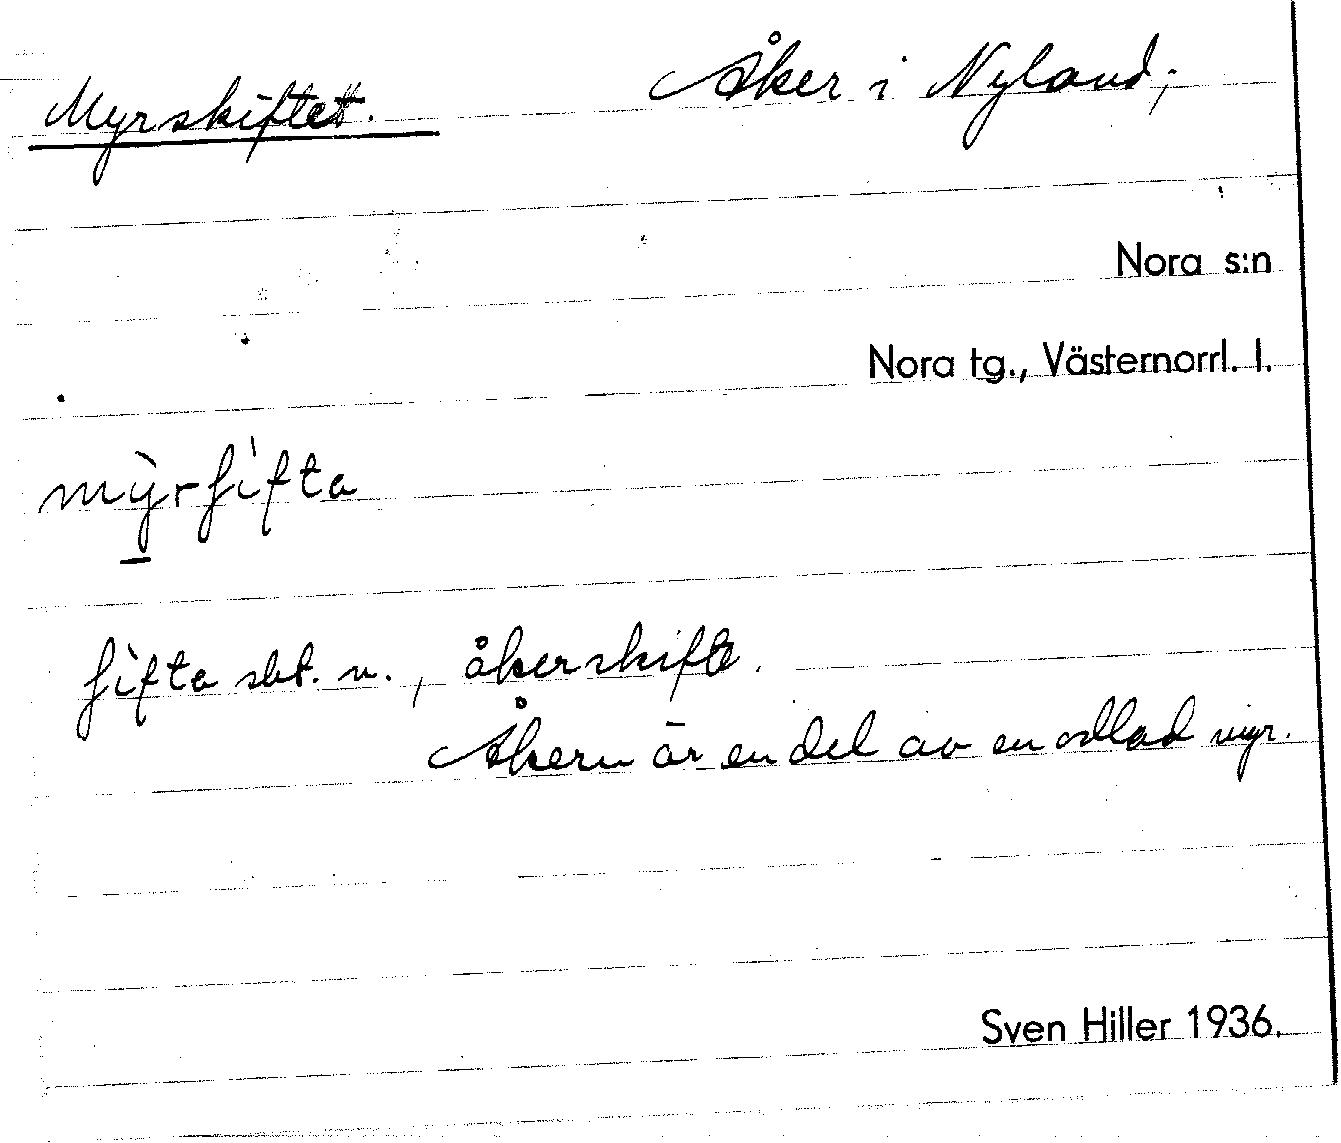 Myrskiftet. Åker i Nyland;
Nora s:n
Nora tg., Västernorrl. l.
mỳrʃìfta
ʃìfta sbt. n., åkerskifte.
Åkern är en del av en odlad myr.
Sven Hiller 1936.